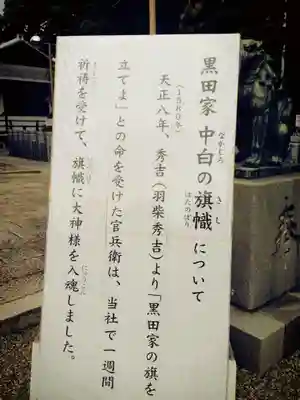 黒田家 中白の旗幟について
なかじろ
きし
はたのぼり
天正八年、秀吉（羽柴秀吉）より「黒田家の旗を
（1580年）
立てよ」との命を受けた官兵衛は、当社で一週間
祈祷を受けて、旗幟に大神様を入魂しました。